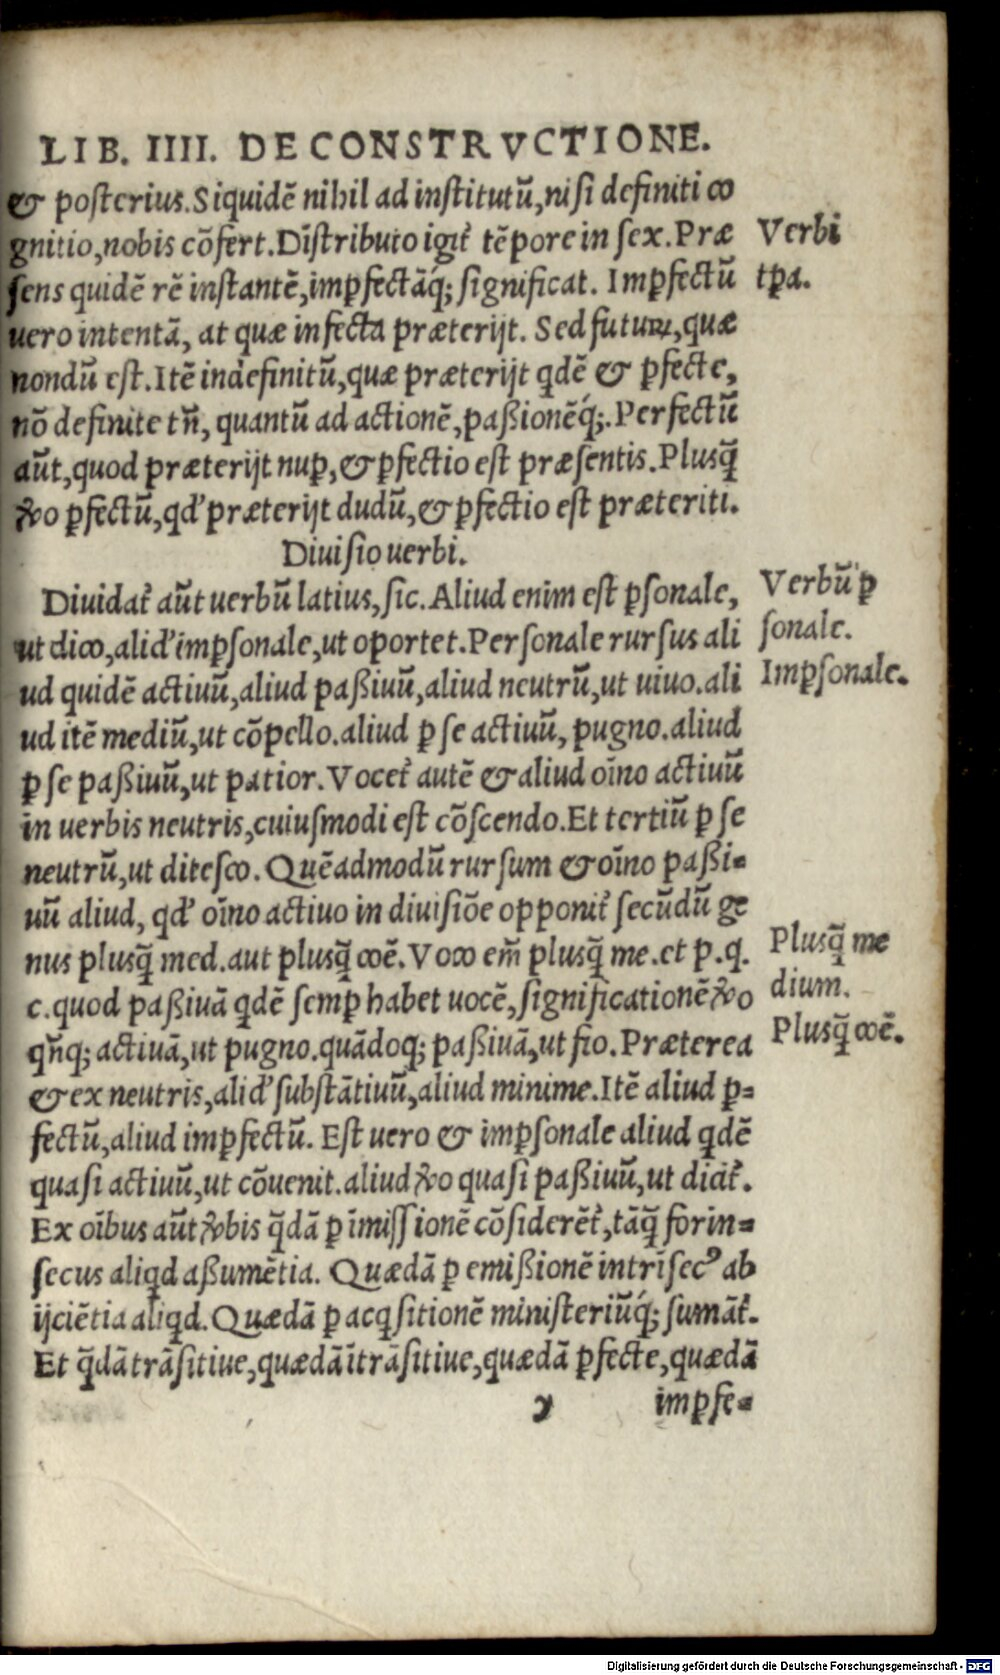 LIB. IIII. DE CONSTRVCTIONE.
& posterius. Siquidē nihil ad institutū, nisi definiti co
gnitio, nobis cōfert. Distributo igit᷑ tēpore in sex. Præ
sens quidē rē instantē, imꝑfectāq́; significat. Imꝑfectū
uero intentā, at quæ infecta præterijt. Sed futuꝝ, quæ
nondū est. Itē indefinitū, quæ præterijt qdē & ꝑfecte,
nō definite tn̄, quantū ad actionē, paßionēq́;. Perfectū
aūt, quod præterijt nuꝑ, & ꝑfectio est præsentis. Plusq̄
ꝟo ꝑfectū, qd' præterijt dudū, & ꝑfectio est præteriti.
Diuisio uerbi.
Diuidat᷑ aūt uerbū latius, sic. Aliud enim est ꝑsonale,
ut dico, alid' imꝑsonale, ut oportet. Personale rursus ali
ud quidē actiuū, aliud paßiuū, aliud neutrū, ut uiuo. ali
ud itē mediū, ut cōpello. aliud ꝑ se actiuū, pugno. aliud
ꝑ se paßiuū, ut patior. Vocet᷑ autē & aliud oīno actiuū
in uerbis neutris, cuiusmodi est cōscendo. Et tertiū ꝑ se
neutrū, ut ditesco. Quēadmodū rursum & oīno paßi=
uū aliud, qd' oīno actiuo in diuisiōe opponit᷑ secūdū ge
nus plusq̄ med. aut plusq̄ coē. Voco em̄ plusq̄ me. et p.q.
c. quod paßiuā qdē semꝑ habet uocē, significationē ꝟo
qn̄q; actiuā, ut pugno. quādoq; paßiuā, ut fio. Præterea
& ex neutris, alid' substātiuū, aliud minime. Itē aliud ꝑ=
fectū, aliud imꝑfectū. Est uero & imꝑsonale aliud qdē
quasi actiuū, ut cōuenit. aliud ꝟo quasi paßiuū, ut dicit᷑.
Ex oībus aūt ꝟbis q̄dā ꝑ īmissionē cōsiderēt᷑, tāq̄ forin=
secus aliqd aßumētia. Quædā ꝑ emißionē intrīsecꝰ ab
ijciētia aliqd. Quædā ꝑ acqsitionē ministeriūq́; sumāt᷑.
Et q̄dā trāsitiue, quædā ītrāsitiue, quædā ꝑfecte, quædā
y imꝑfe=
Verbi
tꝑa.
Verbū ꝑ
sonale.
Imꝑsonale.
Plusq̄ me
dium.
Plusq̄ coē.
Digitalisierung gefördert durch die Deutsche Forschungsgemeinschaft - DFG